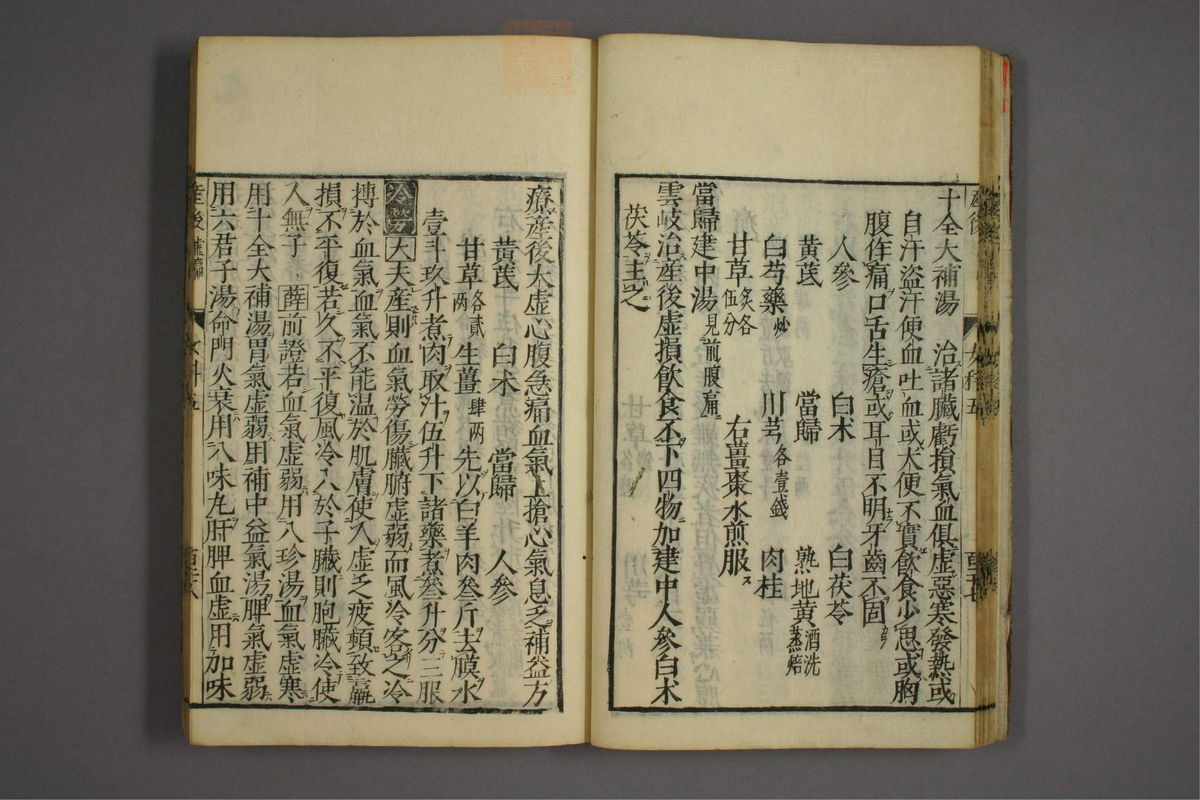 十全大補湯　治諸臟虧損氣血俱虛惡寒發熱或
自汗盜汗便血吐血或大便不實飲食少思或胸
腹作痛口舌生瘡或耳目不明牙齒不固
人參　白朮　白茯苓
黃芪　當歸　熟地黃酒洗蒸焙
白芍藥炒　川芎各壹錢　肉桂
甘草炙各伍分　右薑棗水煎服
當歸建中湯見前腹痛
雲岐治產後虛損飲食不下四物加建中人參白朮
茯苓主之
療產後大虛心腹急痛血氣上搶心氣息乏補益方
黃芪　白朮　當歸　人參
甘草各貳兩　生薑肆兩　先以白羊肉叄斤去膜水
壹斗玖升煮肉取汁伍升下諸藥煮叄升分三服
大夫產則血氣勞傷臟腑虛弱而風冷客之冷
搏於血氣血氣不能溫於肌膚使人虛乏疲頓致羸
損不平復若久不平復風冷入於子臟則胞臟冷使
人無子　薛前證若血氣虛弱用八珍湯血氣虛寒
用十全大補湯胃氣虛弱用補中益氣湯脾氣虛弱
用六君子湯命門火衰用八味丸肝脾血虛用加味
產後
女科五